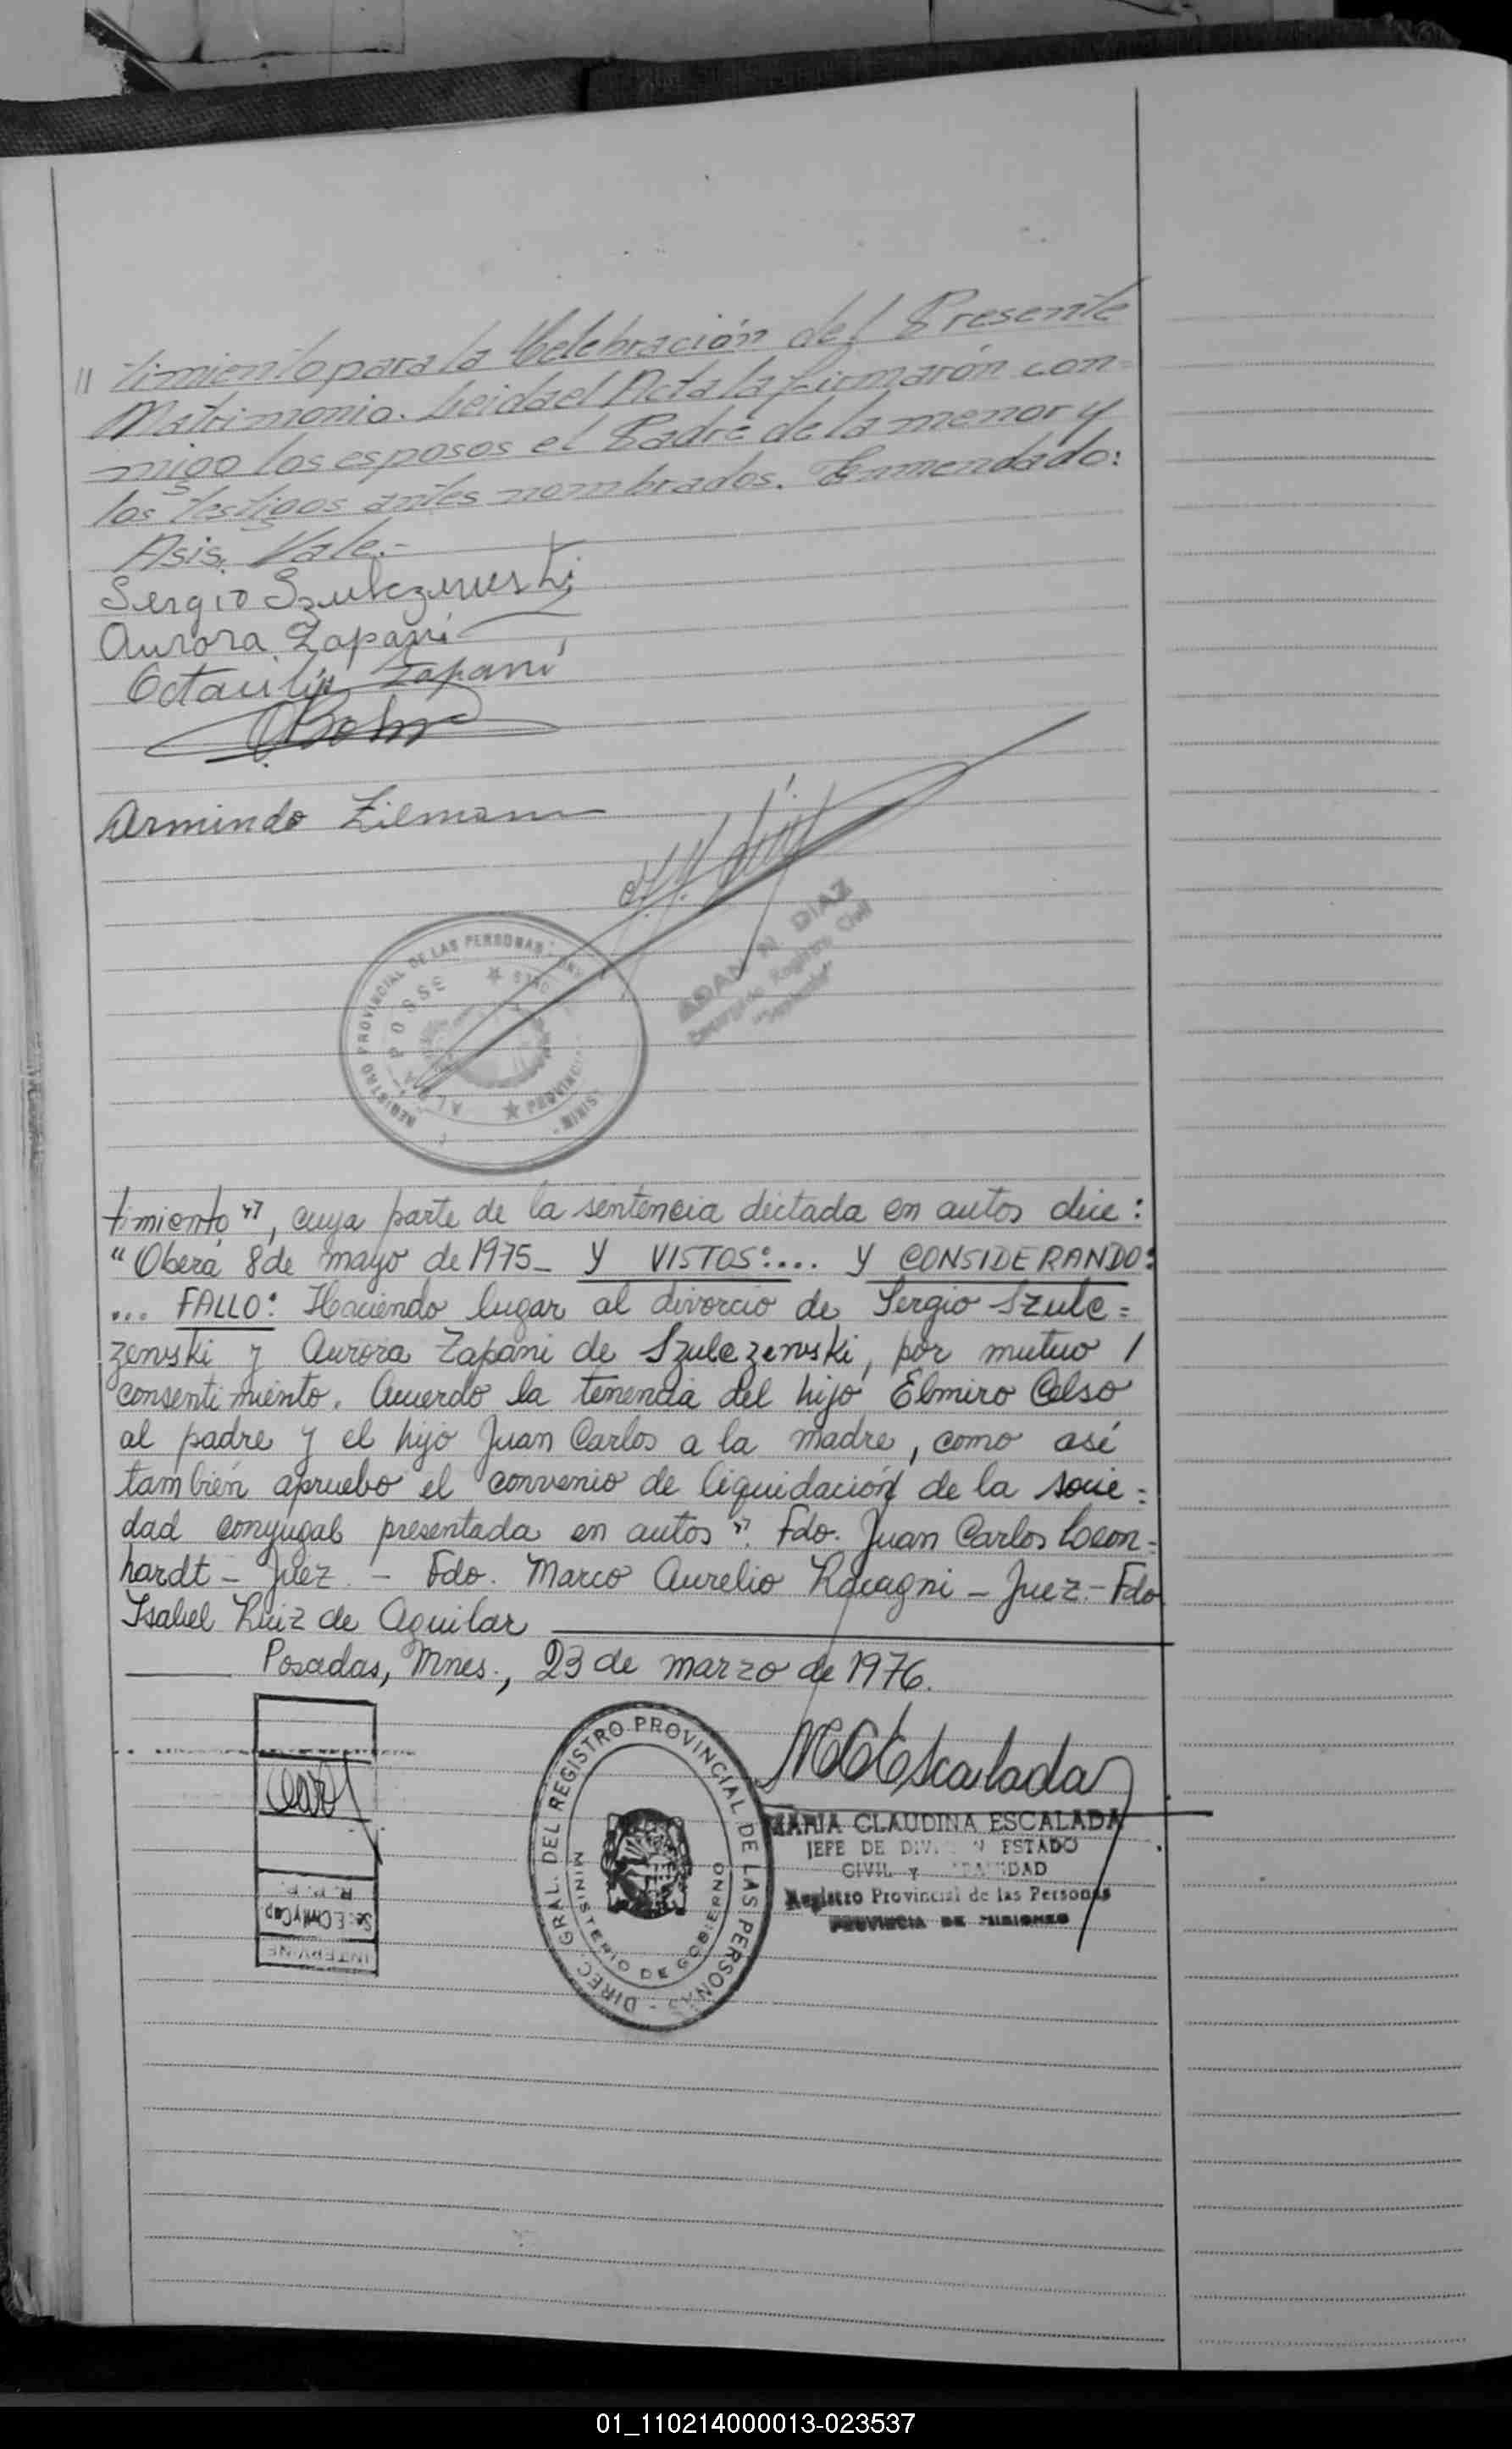 // timiento para la Celebración del Presente
Matrimonio. Leida el Acta la firmarón con=
migo los esposos el Padre de la menor y
los testigos antes nombrados. Enmendado:
Asis. Vale.-
Sergio Szulczewski
Aurora Zapani
Octacilio Zapani
Armindo Zilemann
REGISTRO PROVINCIAL DE LAS PERSONAS
ALBA POSSE
PROVINCIA
MINIS
ADAN N. DIAZ
Encargado Registro Civil
timiento", cuya parte de la sentencia dictada en autos dice:
"Oberá 8 de mayo de 1975_ Y VISTOS:.... Y CONSIDERANDO:
... FALLO: Haciendo lugar al divorcio de Sergio Szulc=
zewski y Aurora Zapani de Szulczewski, por mutuo /
consentimiento. Acuerdo la tenencia del hijo Elmiro Celso
al padre y el hijo Juan Carlos a la madre, como así
también apruebo el convenio de liquidación de la socie=
dad conyugal presentada en autos". Fdo. Juan Carlos Leon=
hardt - Juez. - Fdo. Marco Aurelio Racagni - Juez.- Fdo
Isabel Ruiz de Aguilar
Posadas, Mnes., 23 de marzo de 1976.
MCEscalada
DIREC. GRAL. DEL REGISTRO PROVINCIAL DE LAS PERSONAS -
MINISTERIO DE GOBIERNO
MARIA CLAUDINA ESCALADA
JEFE DE DIV. ESTADO
CIVIL Y DAD
Registro Provincial de las Personas
PROVINCIA DE MISIONES
R. P. P.
Sc. E. Civil y Cap
INTERVINE
01_110214000013-023537